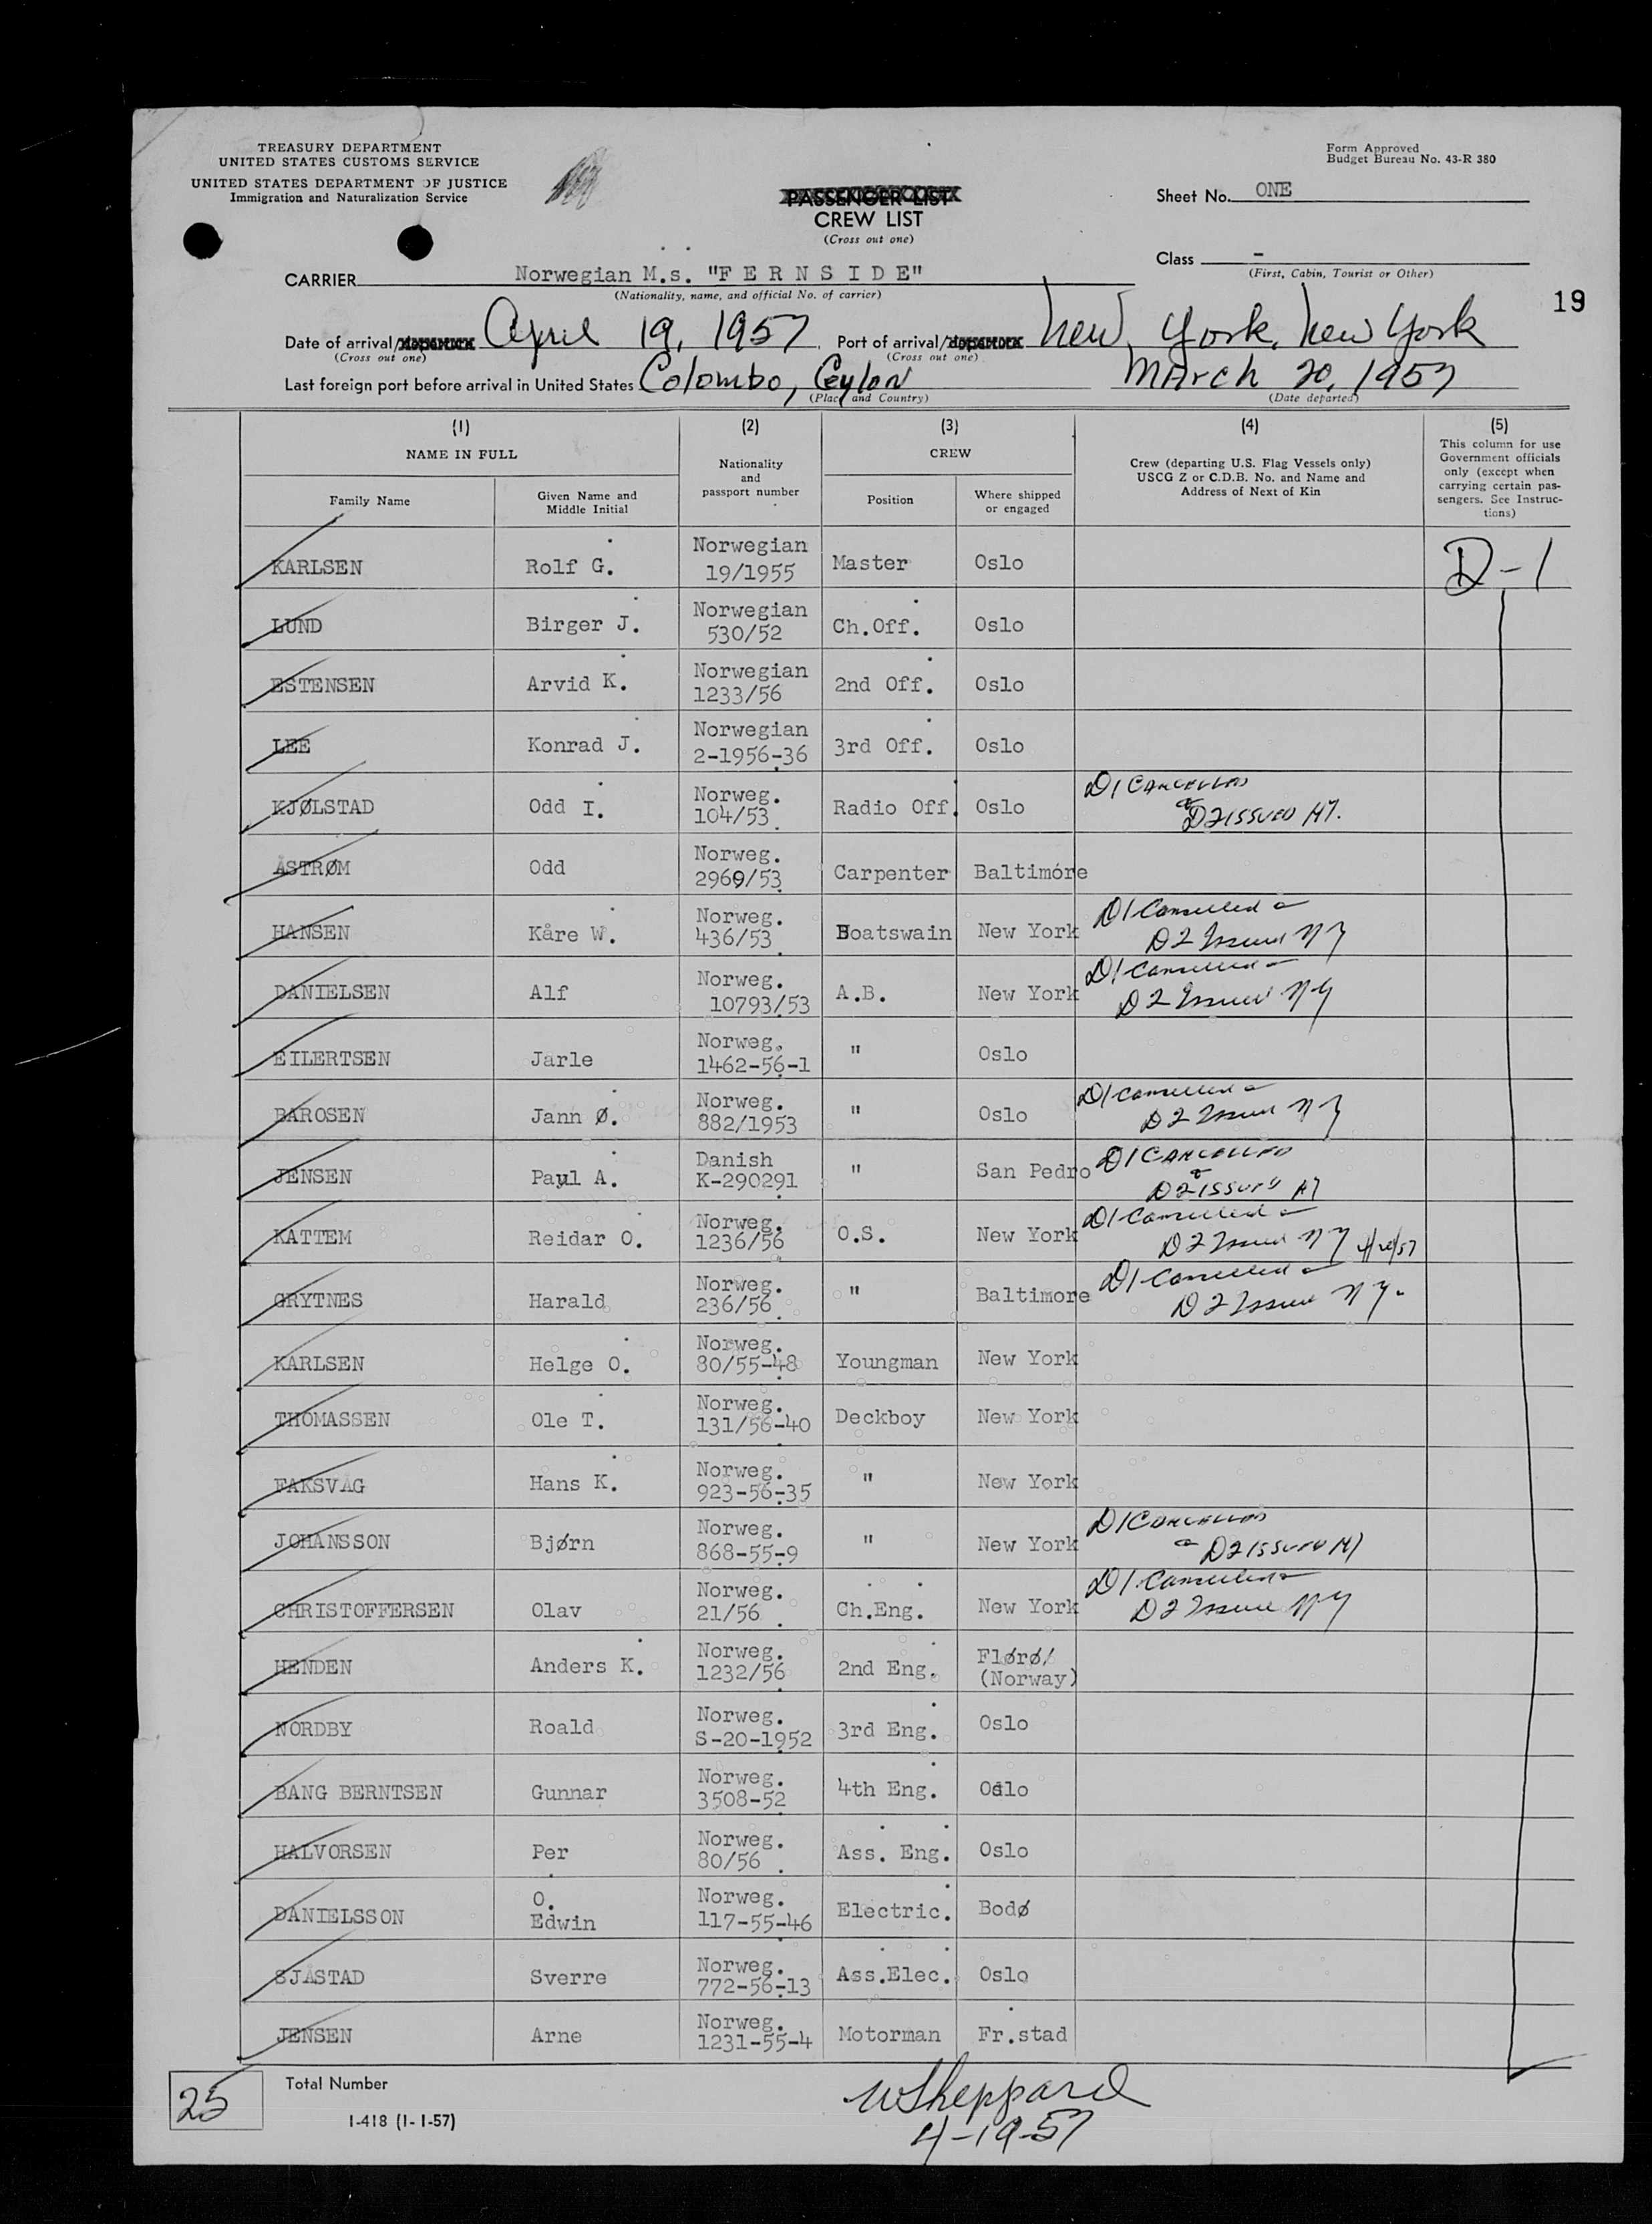 TREASURY DEPARTMENT
UNITED STATES CUSTOMS SERVICE
UNITED STATES DEPARTMENT OF JUSTICE
Immigration and Naturalization Service
Form Approved
Budget Bureau No. 43-R 380
PASSENGER LIST
CREW LIST
(Cross out one)
Sheet No. ONE
Class -
(First, Cabin, Tourist or Other)
CARRIER Norwegian M.s. "F E R N S I D E"
(Nationality, name, and official No. of carrier)
19
Date of arrival/departure April 19, 1957 Port of arrival/departure New York, New York
(Cross out one) (Cross out one)
Last foreign port before arrival in United States Colombo, Ceylon March 20, 1957
(Place and Country) (Date departed)
(1) (2) (3) (4) (5)
NAME IN FULL
Family Name
Given Name and Middle Initial
Nationality and passport number
CREW
Position
Where shipped or engaged
Crew (departing U.S. Flag Vessels only)
USCG Z or C.D.B. No. and Name and
Address of Next of Kin
This column for use
Government officials
only (except when
carrying certain pas-
sengers. See Instruc-
tions)
KARLSEN Rolf G. Norwegian 19/1955 Master Oslo D-1
LUND Birger J. Norwegian 530/52 Ch.Off. Oslo
ESTENSEN Arvid K. Norwegian 1233/56 2nd Off. Oslo
LEE Konrad J. Norwegian 2-1956-36 3rd Off. Oslo
KJØLSTAD Odd I. Norweg. 104/53 Radio Off. Oslo D1 CANCELLED & D2 ISSUED NY.
ÅSTRØM Odd Norweg. 2969/53 Carpenter Baltimore
HANSEN Kåre W. Norweg. 436/53 Boatswain New York D1 Cancelled & D2 Issued NY
DANIELSEN Alf Norweg. 10793/53 A.B. New York D1 Cancelled & D2 Issued NY
EILERTSEN Jarle Norweg. 1462-56-1 " Oslo
BAROSEN Jann Ø. Norweg. 882/1953 " Oslo D1 Cancelled & D2 Issued NY
JENSEN Paul A. Danish K-290291 " San Pedro D1 CANCELLED & D2 ISSUED NY
KATTEM Reidar O. Norweg. 1236/56 O.S. New York D1 Cancelled & D2 Issued NY 4/20/57
GRYTNES Harald Norweg. 236/56 " Baltimore D1 Cancelled & D2 Issued NY.
KARLSEN Helge O. Norweg. 80/55-48 Youngman New York
THOMASSEN Ole T. Norweg. 131/56-40 Deckboy New York
FAKSVÅG Hans K. Norweg. 923-56-35 " New York
JOHANSSON Bjørn Norweg. 868-55-9 " New York D1 CANCELLED & D2 ISSUED NY
CHRISTOFFERSEN Olav Norweg. 21/56 Ch.Eng. New York D1 Cancelled & D2 Issued NY
HENDEN Anders K. Norweg. 1232/56 2nd Eng. Florø/ (Norway)
NORDBY Roald Norweg. S-20-1952 3rd Eng. Oslo
BANG BERNTSEN Gunnar Norweg. 3508-52 4th Eng. Oslo
HALVORSEN Per Norweg. 80/56 Ass. Eng. Oslo
DANIELSSON O. Edwin Norweg. 117-55-46 Electric. Bodø
SJÅSTAD Sverre Norweg. 772-56-13 Ass.Elec. Oslo
JENSEN Arne Norweg. 1231-55-4 Motorman Fr.stad
25 Total Number
I-418 (1-1-57)
W Sheppard
4-19-57